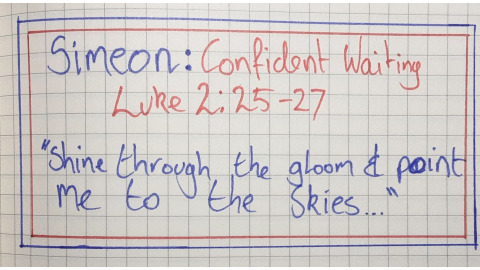 Simeon: Confident Waiting
Luke 2:25-27
"Shine through the gloom & point
me to the Skies..."